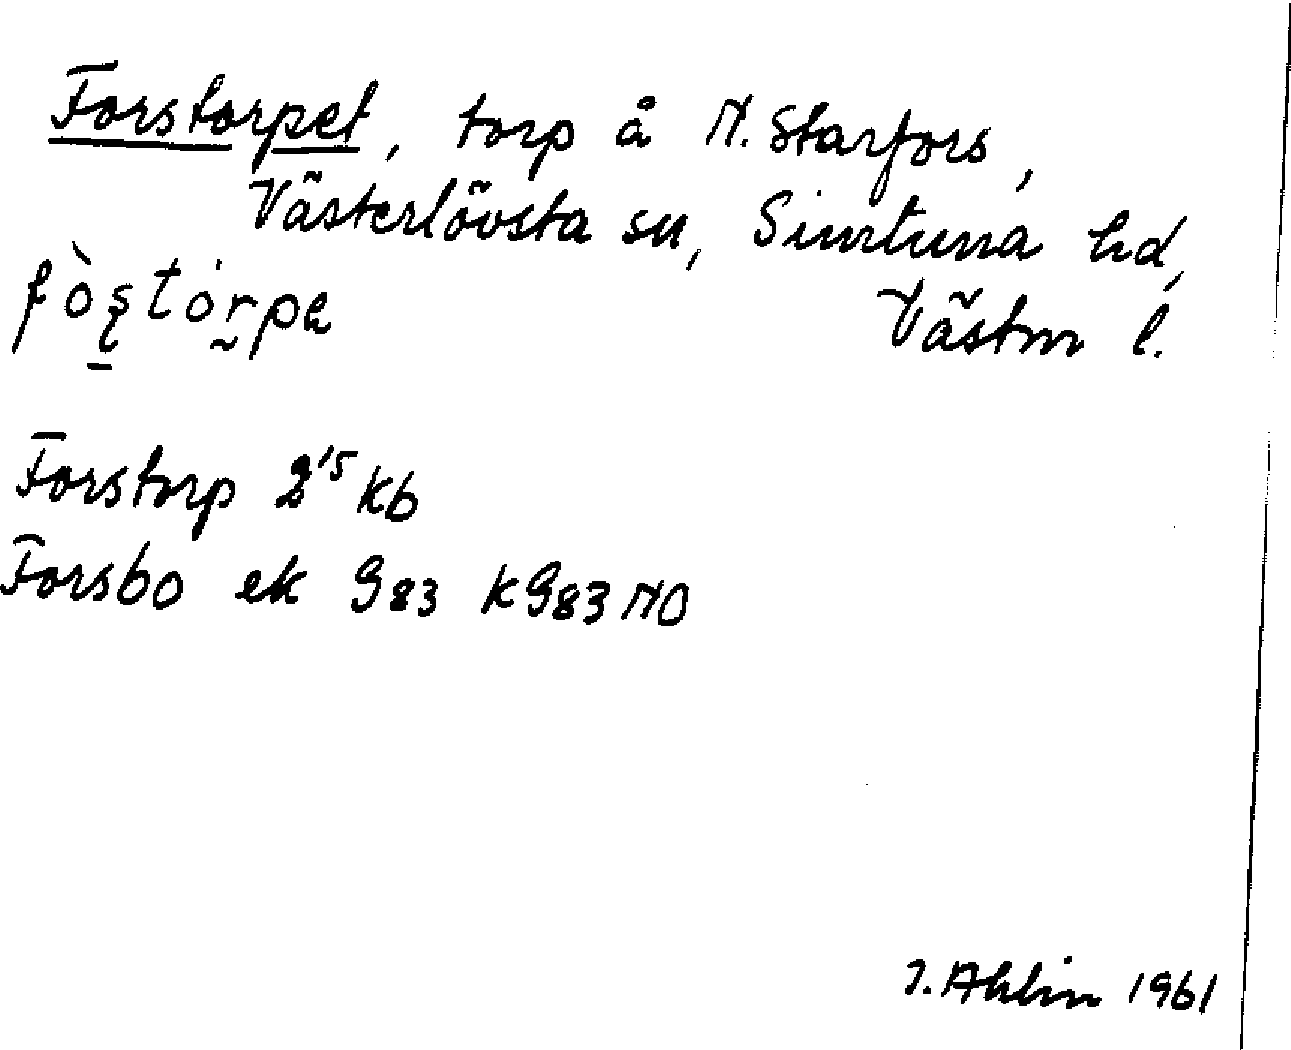 Forstorpet, torp å N. Starfors,
Västerlövsta sn, Simtuna hd,
Västm l.
fòs̠tórpe
Forstorp 2¹⁵ kb
Forsbo ek G83 KG83 NO
I. Ahlin 1961